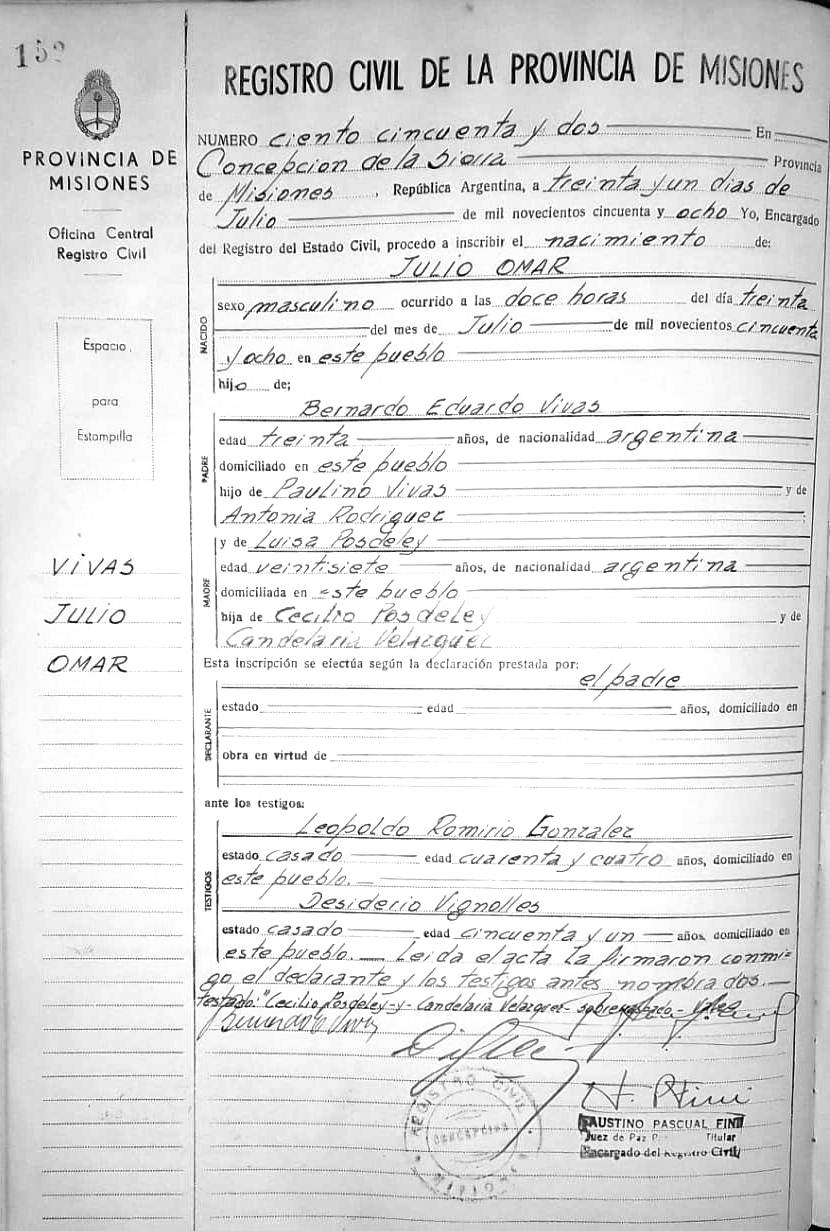 152
PROVINCIA DE
MISIONES
Oficina Central
Registro Civil
Espacio
para
Estampilla
VIVAS
JULIO
OMAR
REGISTRO CIVIL DE LA PROVINCIA DE MISIONES
NUMERO ciento cincuenta y dos En
Concepcion de la Sierra Provincia
de Misiones, República Argentina, a treinta y un dias de
Julio de mil novecientos cincuenta y ocho Yo, Encargado
del Registro del Estado Civil, procedo a inscribir el nacimiento de:
JULIO OMAR
NACIDO
sexo masculino ocurrido a las doce horas del día treinta
del mes de Julio de mil novecientos cincuenta
y ocho en este pueblo
hijo de;
PADRE
Bernardo Eduardo Vivas
edad treinta años, de nacionalidad argentina
domiciliado en este pueblo
hijo de Paulino Vivas y de
Antonia Rodriguez;
MADRE
y de Luisa Posdeley
edad veintisiete años, de nacionalidad argentina
domiciliada en este pueblo
hija de Cecilio Posdeley y de
Candelaria Velazquez
Esta inscripción se efectúa según la declaración prestada por:
el padre
DECLARANTE
estado edad años, domiciliado en
obra en virtud de
ante los testigos:
TESTIGOS
Leopoldo Romirio Gonzalez
estado casado edad cuarenta y cuatro años, domiciliado en
este pueblo.
Desiderio Vignolles
estado casado edad cincuenta y un años, domiciliado en
este pueblo. — Leida el acta la firmaron conmi=
go el declarante y los testigos antes nombrados. —
Testado: "Cecilio Posdeley - y - Candelaria Velazquez - sobreraspado -
REGISTRO CIVIL
CONCEPCION
MISIONES
FAUSTINO PASCUAL FINI
Juez de Paz Titular
Encargado del Registro Civil